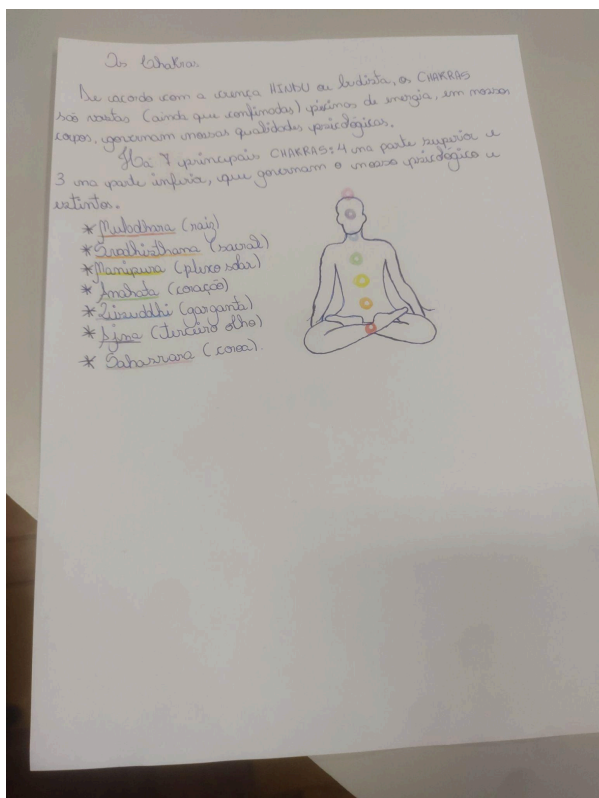 Os Chakras
De acordo com a crença HINDU ou budista, os CHAKRAS
são vastas (ainda que confinadas) piscinas de energia, em nossos
corpos, governam nossas qualidades psicológicas.
Há 7 principais CHAKRAS: 4 na parte superior e
3 na parte inferior, que governam o nosso psicológico e
extintos.
* Muladhara (raiz)
* Svadhisthana (sacral)
* Manipura (plexo solar)
* Anahata (coração)
* Vizuddhi (garganta)
* Ajna (terceiro olho)
* Sahasrara (coroa).